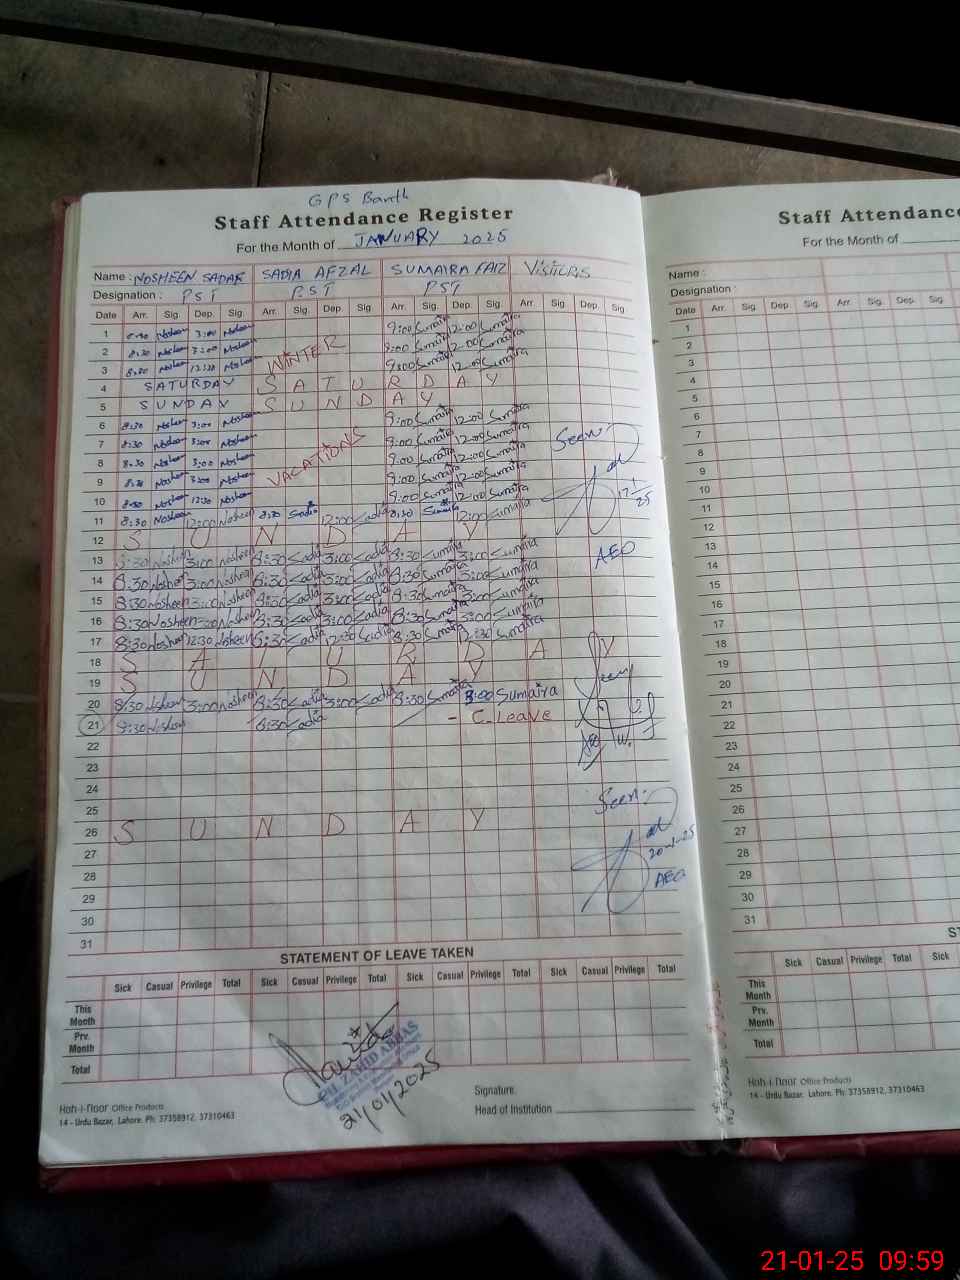 GPS Banth
Staff Attendance Register
For the Month of JANUARY 2025
Name : NOSHEEN SADAR SADIA AFZAL SUMAIRA FAIZ VISITORS
Designation : PST PST PST
Date Arr. Sig. Dep. Sig. Arr. Sig. Dep. Sig. Arr. Sig. Dep. Sig. Arr. Sig. Dep. Sig.
1 8:30 Nosheen 3:00 Nosheen 9:00 Sumaira 12:00 Sumaira
2 8:30 Nosheen 3:00 Nosheen WINTER 9:00 Sumaira 12:00 Sumaira
3 8:30 Nosheen 12:30 Nosheen 9:00 Sumaira 12:00 Sumaira
4 SATURDAY SATURDAY
5 SUNDAY SUNDAY
6 8:30 Nosheen 3:00 Nosheen 9:00 Sumaira 12:00 Sumaira
7 8:30 Nosheen 3:00 Nosheen 9:00 Sumaira 12:00 Sumaira Seen
8 8:30 Nosheen 3:00 Nosheen VACATIONS 9:00 Sumaira 12:00 Sumaira
9 8:30 Nosheen 3:00 Nosheen 9:00 Sumaira 12:00 Sumaira
10 8:30 Nosheen 12:30 Nosheen 9:00 Sumaira 12:00 Sumaira
11 8:30 Nosheen 12:00 Nosheen 8:30 Sadia 12:00 Sadia 8:30 Sumaira 12:00 Sumaira
12 SUNDAY
13 8:30 Nosheen 3:00 Nosheen 8:30 Sadia 3:00 Sadia 8:30 Sumaira 3:00 Sumaira AEO
14 8:30 Nosheen 3:00 Nosheen 8:30 Sadia 3:00 Sadia 8:30 Sumaira 3:00 Sumaira
15 8:30 Nosheen 3:00 Nosheen 8:30 Sadia 3:00 Sadia 8:30 Sumaira 3:00 Sumaira
16 8:30 Nosheen 3:00 Nosheen 8:30 Sadia 3:00 Sadia 8:30 Sumaira 3:00 Sumaira
17 8:30 Nosheen 12:30 Nosheen 8:30 Sadia 12:30 Sadia 8:30 Sumaira 12:30 Sumaira
18 SATURDAY
19 SUNDAY
20 8:30 Nosheen 3:00 Nosheen 8:30 Sadia 3:00 Sadia 8:30 Sumaira 3:00 Sumaira Seen
21 8:30 Nosheen 8:30 Sadia - C. Leave
22 AEO
23
24
25 Seen
26 SUNDAY
27 20-1-25
28 AEO
29
30
31
STATEMENT OF LEAVE TAKEN
Sick Casual Privilege Total Sick Casual Privilege Total Sick Casual Privilege Total Sick Casual Privilege Total
This Month
Prv. Month
Total
ZAHID ABBAS
21/01/2025
Signature.
Head of Institution
Hoh-i-Noor Office Products
14 - Urdu Bazar, Lahore. Ph: 37358912, 37310463
Staff Attendance
For the Month of
Name :
Designation :
Date Arr. Sig. Dep. Sig. Arr. Sig. Dep. Sig.
1
2
3
4
5
6
7
8
9
10
11
12
13
14
15
16
17
18
19
20
21
22
23
24
25
26
27
28
29
30
31
Sick Casual Privilege Total Sick
This Month
Prv. Month
Total
Hoh-i-Noor Office Products
14 - Urdu Bazar, Lahore. Ph: 37358912, 37310463
21-01-25 09:59